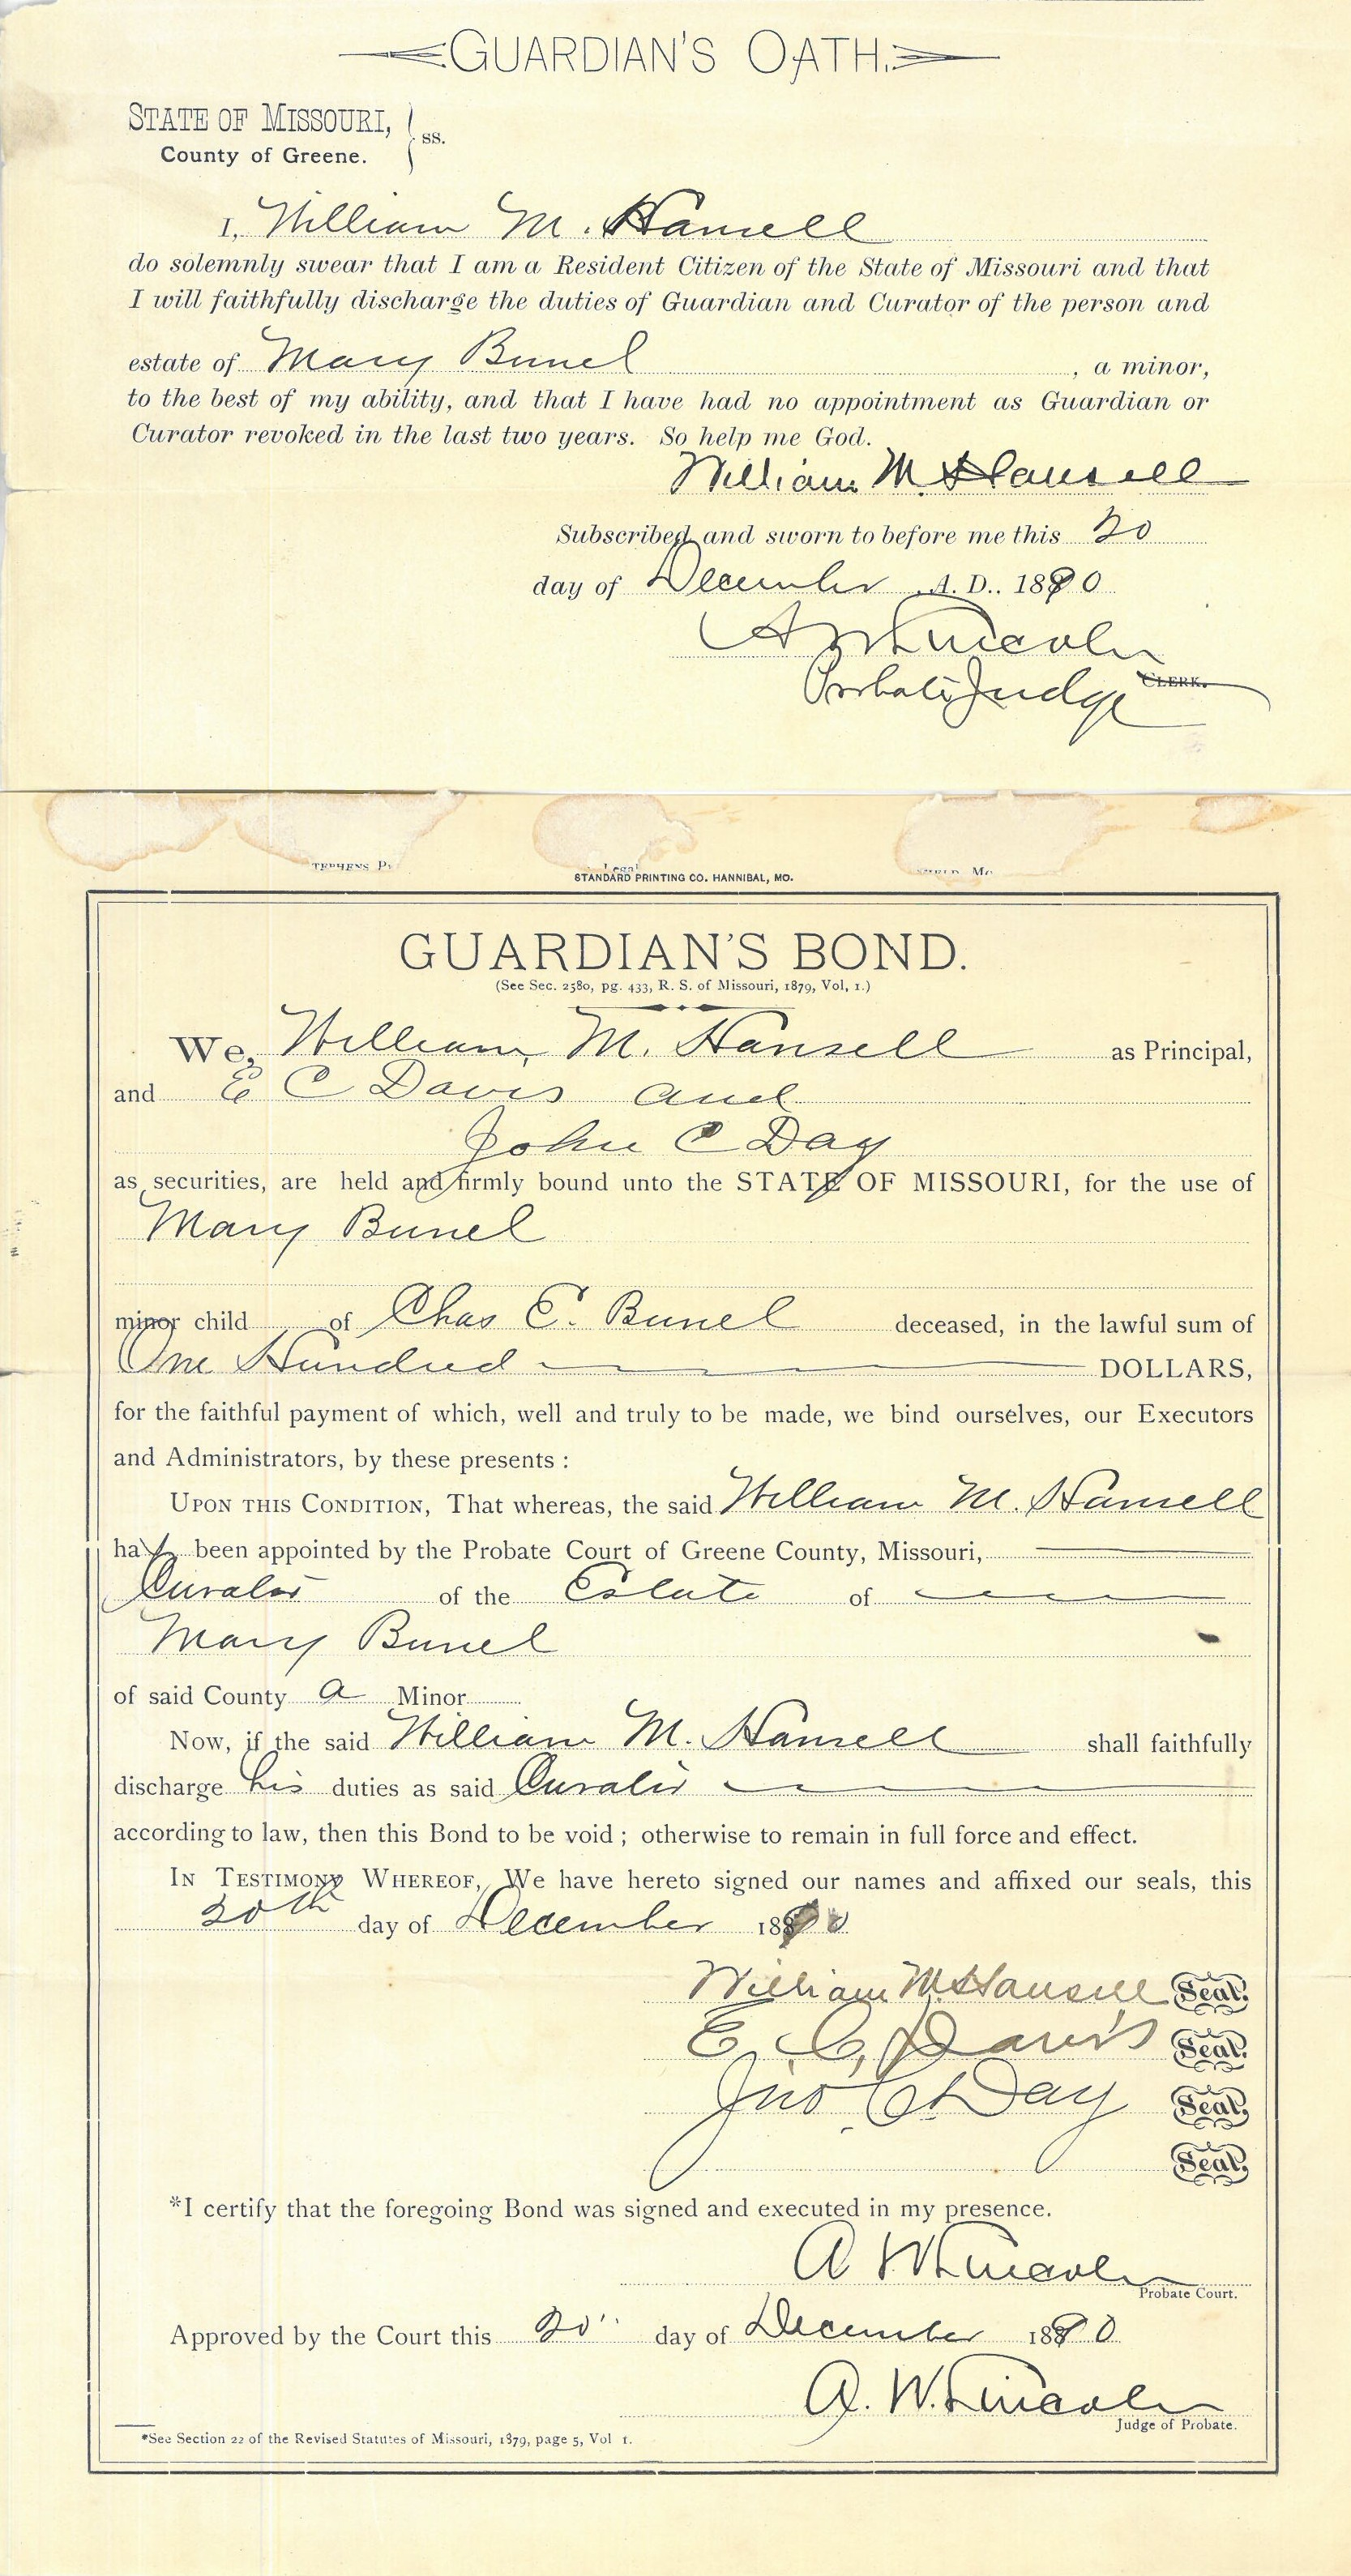 GUARDIAN'S OATH.
STATE OF MISSOURI, } ss.
County of Greene.
I, William M. Hansell
do solemnly swear that I am a Resident Citizen of the State of Missouri and that
I will faithfully discharge the duties of Guardian and Curator of the person and
estate of Mary Bunel , a minor,
to the best of my ability, and that I have had no appointment as Guardian or
Curator revoked in the last two years. So help me God.
William M. Hansell
Subscribed and sworn to before me this 20
day of December A. D.. 1890
A W Lincoln
Probate Judge CLERK.
TEPHENS P
Legal
STANDARD PRINTING CO. HANNIBAL, MO.
GUARDIAN'S BOND.
(See Sec. 2580, pg. 433, R. S. of Missouri, 1879, Vol, 1.)
We, William M. Hansell as Principal,
and E C Davis and
John C Day
as securities, are held and firmly bound unto the STATE OF MISSOURI, for the use of
Mary Bunel
minor child of Chas E. Bunel deceased, in the lawful sum of
One Hundred DOLLARS,
for the faithful payment of which, well and truly to be made, we bind ourselves, our Executors
and Administrators, by these presents :
UPON THIS CONDITION, That whereas, the said William M. Hansell
has been appointed by the Probate Court of Greene County, Missouri,
Curator of the Estate of
Mary Bunel
of said County a Minor
Now, if the said William M. Hansell shall faithfully
discharge his duties as said Curator
according to law, then this Bond to be void ; otherwise to remain in full force and effect.
IN TESTIMONY WHEREOF, We have hereto signed our names and affixed our seals, this
20th day of December 1890
William M. Hansell Seal.
E. C. Davis Seal.
Jno. C. Day Seal.
Seal.
*I certify that the foregoing Bond was signed and executed in my presence.
A W Lincoln
Probate Court.
Approved by the Court this 20" day of December 1890
A. W. Lincoln
Judge of Probate.
*See Section 22 of the Revised Statutes of Missouri, 1879, page 5, Vol 1.